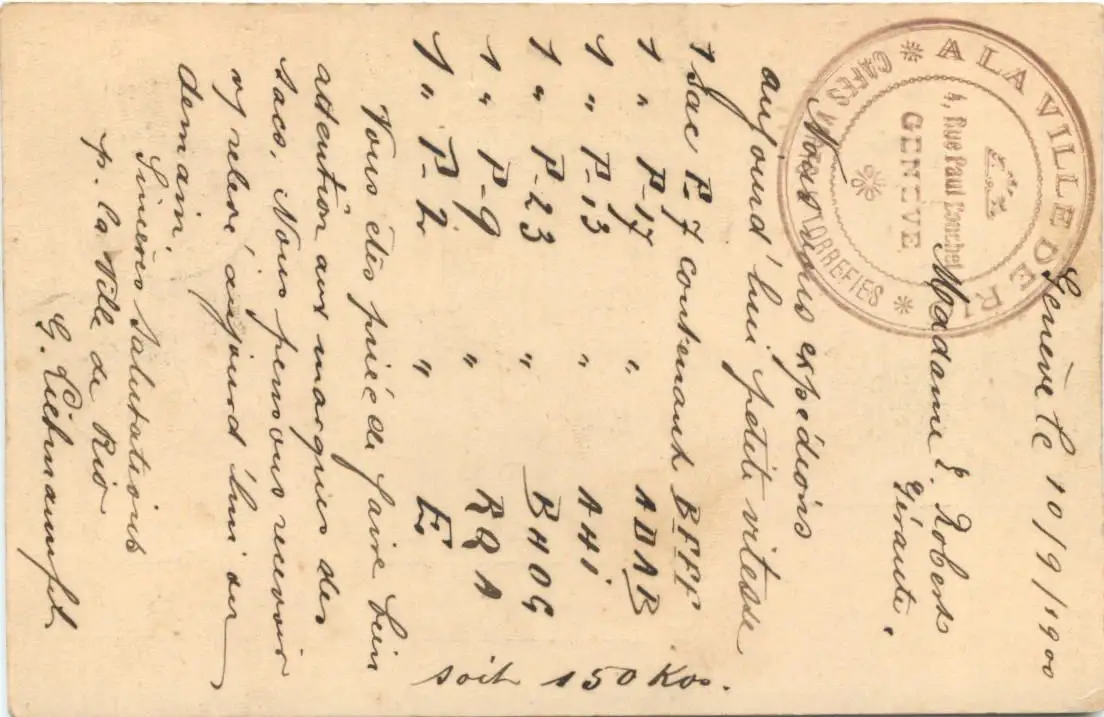 A LA VILLE DE RI
CAFES TORREFIES
4, Rue Paul Bouchet
GENEVE
Genève le 10/9/1900
Madame E. Roberts
Gérante.
Nous vous expédions
aujourd'hui petite vitesse
1 Sac P-7 contenant BFFF
1 " P-17 " ABAB
1 " P-13 " AHI
1 " P-23 " BHOG
1 " P-9 " RQA
1 " P-2 " E.
soit 150 Kos.
Vous êtes priée de faire bien
attention aux marques des
sacs. Nous pensons recevoir
relevé aujourd'hui ou
demain.
Sincères Salutations
p. La Ville de Rio
G.